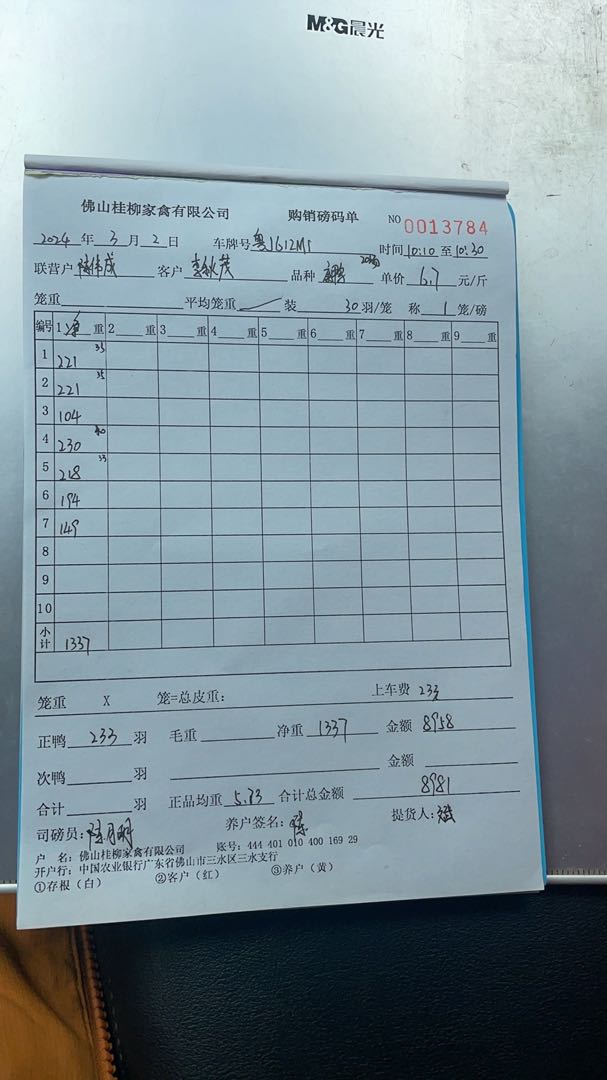 M&G晨光
佛山桂柳家禽有限公司 购销磅码单 NO 0013784
2024年3月2日 车牌号 粤J612M5 时间10:10至10:30
联营户 客户 李秋茂 品种 单价 6.7 元/斤
笼重 平均笼重 装 30 羽/笼 称 1 笼/磅
编号 1 净 重 2 重 3 重 4 重 5 重 6 重 7 重 8 重 9 重
1 221 35
2 221 35
3 104
4 230 40
5 218 33
6 194
7 149
8
9
10
小计 1337
笼重 X 笼=总皮重: 上车费 233
正鸭 233 羽 毛重 净重 1337 金额 8958
次鸭 羽 金额
合计 羽 正品均重 5.73 合计总金额 8981
司磅员: 养户签名: 提货人:
户 名: 佛山桂柳家禽有限公司 账号: 444 401 010 400 169 29
开户行: 中国农业银行广东省佛山市三水区三水支行
①存根(白) ②客户(红) ③养户(黄)